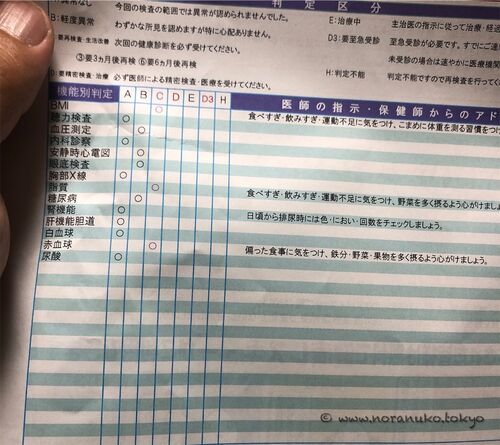 判 定 区 分
異常なし 今回の検査の範囲では異常が認められませんでした。 E:治療中 主治医の指示に従って治療・経過
B:軽度異常 わずかな所見を認めますが特に心配ありません。 D3:要至急受診 至急受診が必要です。すでにご連
:要再検査・生活改善 次回の健康診断を必ず受けてください。 未受診の場合は速やかに医療機関
③要3ヵ月後再検 ⑥要6ヵ月後再検 H:判定不能 判定不能ですので再検査を行って
D:要精密検査・治療 必ず医師による精密検査・医療を受けてください。
機能別判定 A B C D E D3 H 医師の指示・保健師からのアド
BMI ○ 食べすぎ・飲みすぎ・運動不足に気をつけ、こまめに体重を測る習慣をつけ
聴力検査 ○
血圧測定 ○
内科診察 ○
安静時心電図 ○
眼底検査 ○
胸部X線 ○
脂質 ○ 食べすぎ・飲みすぎ・運動不足に気をつけ、野菜を多く摂るよう心がけましょう。
糖尿病 ○
腎機能 ○ 日頃から排尿時には色・におい・回数をチェックしましょう。
肝機能胆道 ○
白血球 ○
赤血球 ○ 偏った食事に気をつけ、鉄分・野菜・果物を多く摂るよう心がけましょう。
尿酸 ○
© www.noranuko.tokyo